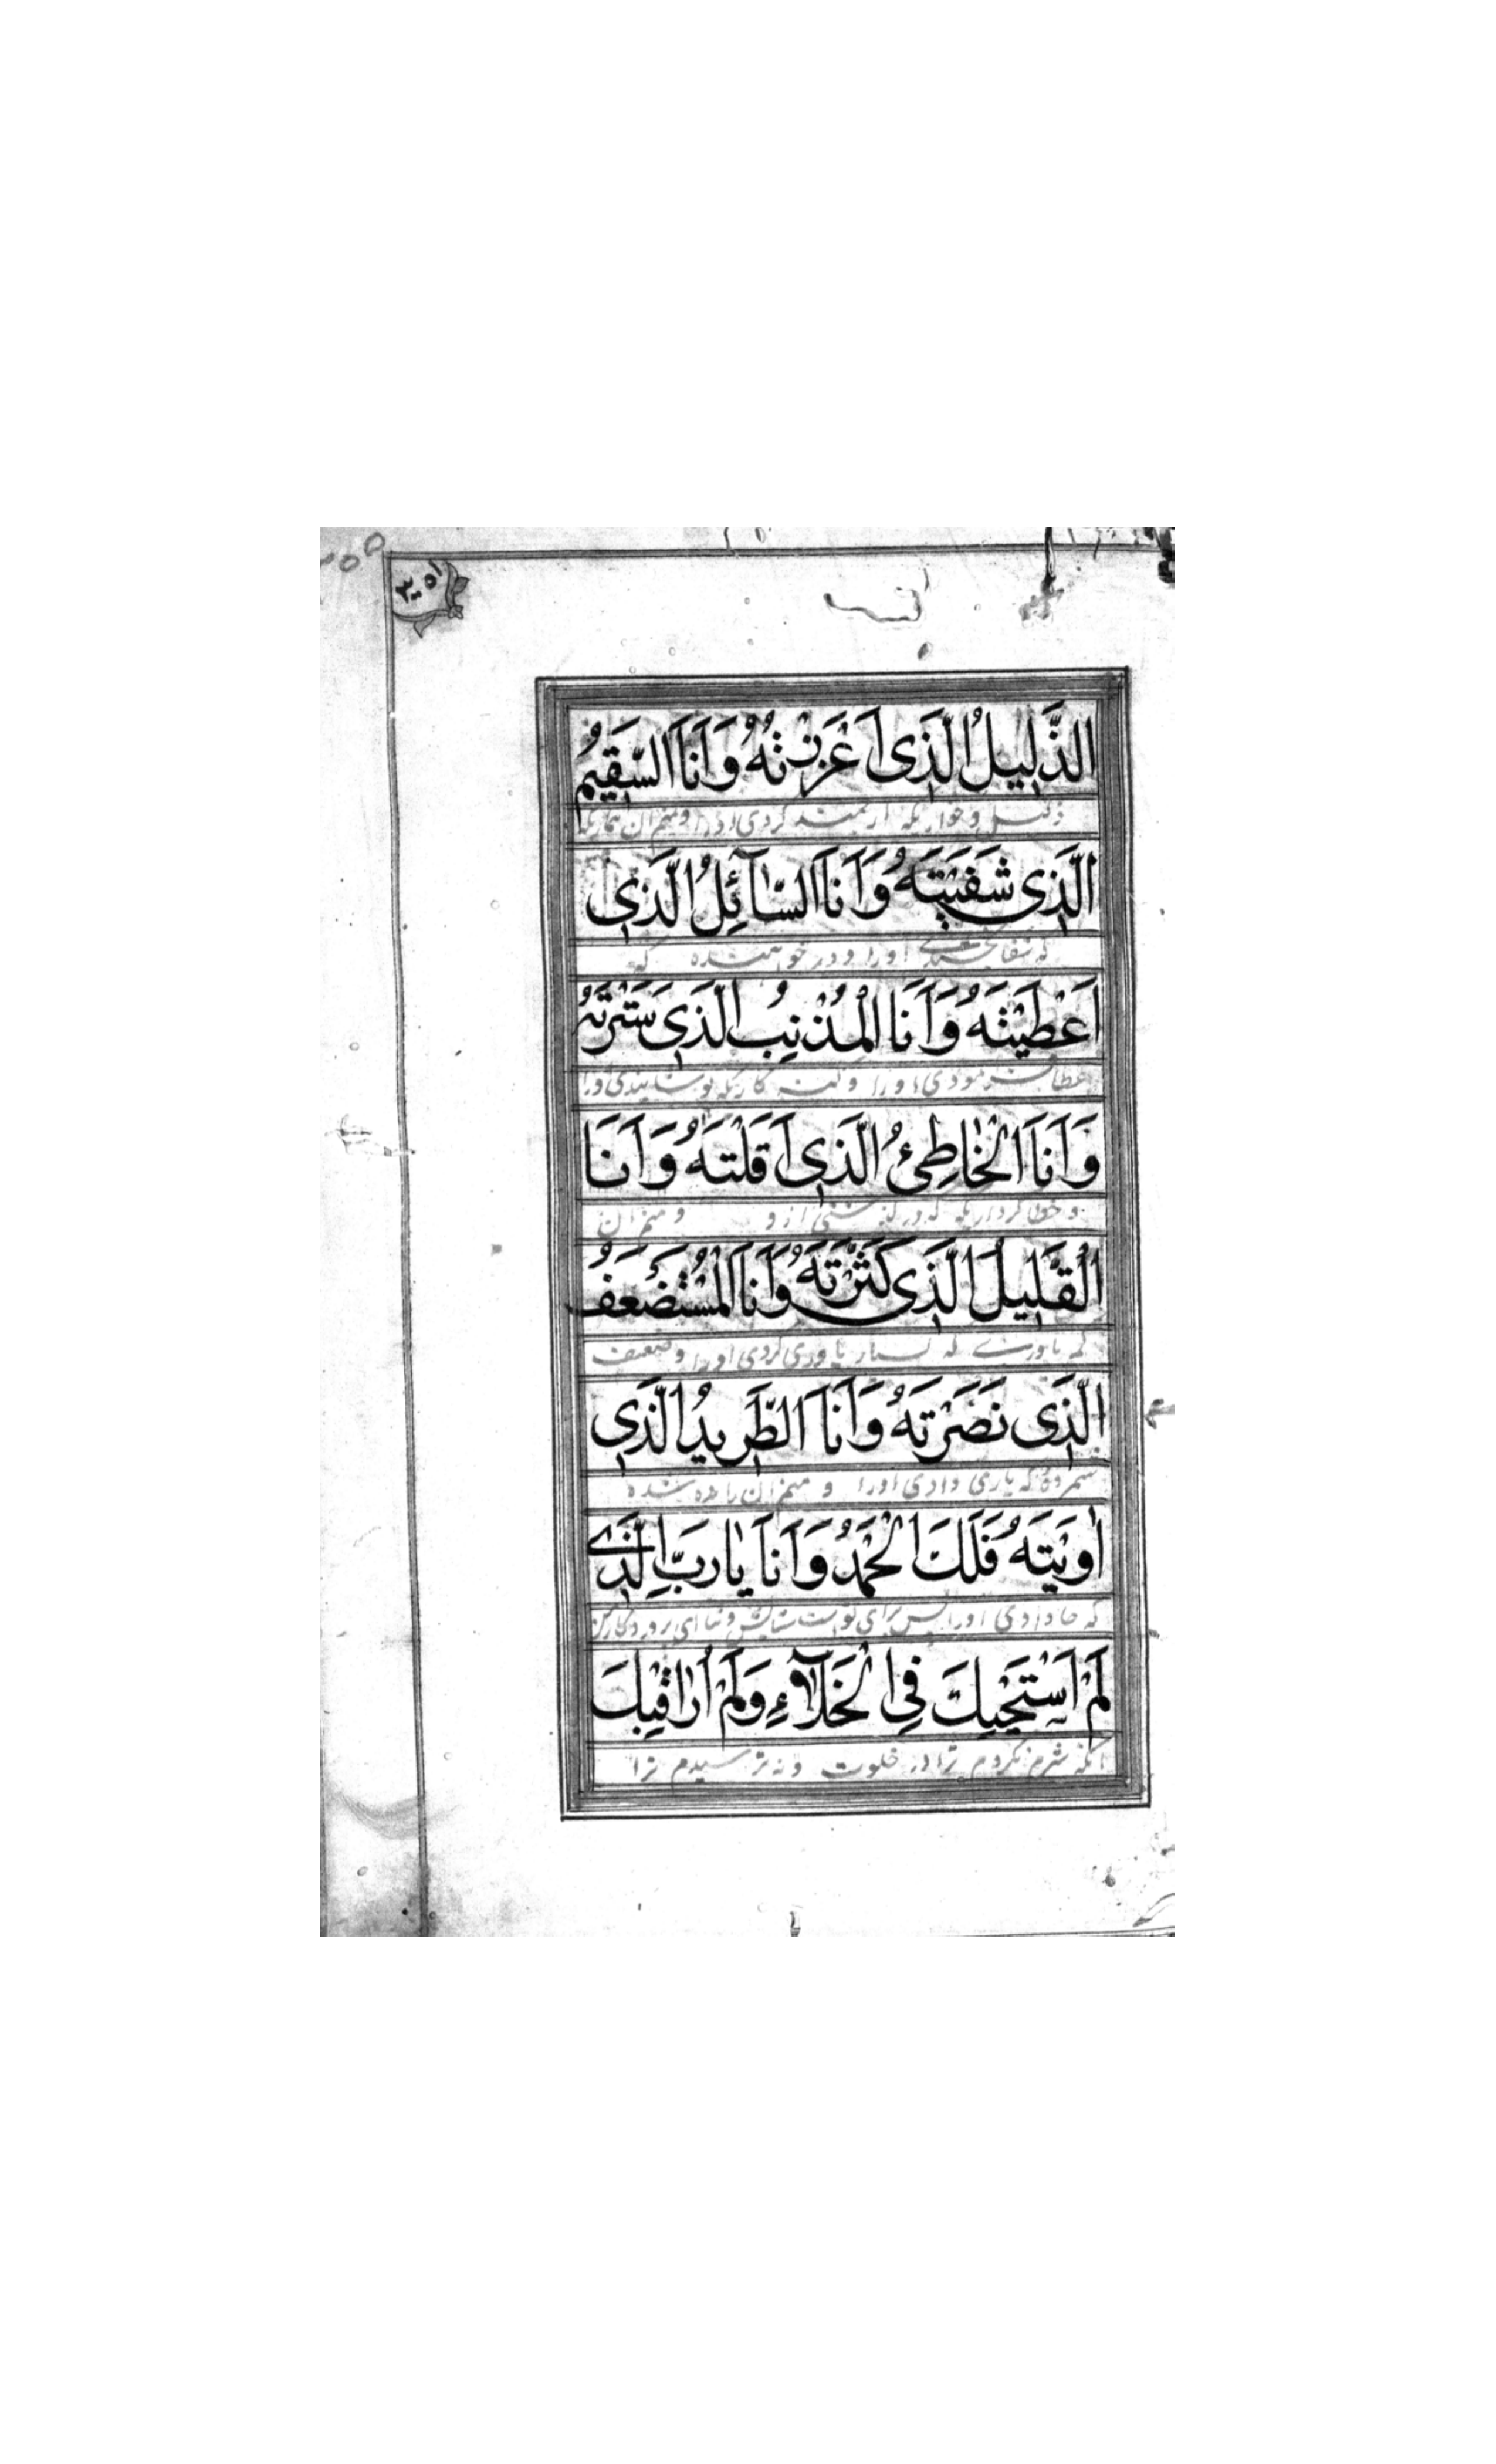 ٣٥١
الذَّلِيلُ الَّذِى اَعْزَزْتَهُ وَاَنَا السَّقِيمُ
ذلیل و خواریکه ارجمند کردی اورا و منم ان بیماریکه
الَّذِى شَفَيْتَهُ وَاَنَا السَّآئِلُ الَّذِى
که شفا اورا و در خواهنده که
اَعْطَيْتَهُ وَاَنَا الْمُذْنِبُ الَّذِى سَتَرْتَهُ
عطا فرمودی اورا و کنه کاریکه پوشانیدی اورا
وَاَنَا الْخَاطِئُ الَّذِى اَقَلْتَهُ وَاَنَا
و خطا کرداریکه که در کذشتی ازو و منم ان
الْقَلِيلُ الَّذِى كَثَّرْتَهُ وَاَنَا الْمُسْتَضْعَفُ
که یاوری کردی اورا و ضعیف
الَّذِى نَصَرْتَهُ وَاَنَا الطَّرِيدُ الَّذِى
شمرده که یاری دادی اورا و منم ان رانده شده
اٰوَيْتَهُ فَلَكَ الْحَمْدُ وَاَنَا يَا رَبِّ الَّذِى
که جا دادی اورا پس برای تو است ستایش و ای پروردکار من
لَمْ اَسْتَحْيِكَ فِى الْخَلَآءِ وَلَمْ اُرَاقِبْكَ
انکه شرم نکردم ترا در خلوت و نه ترسیدم ترا